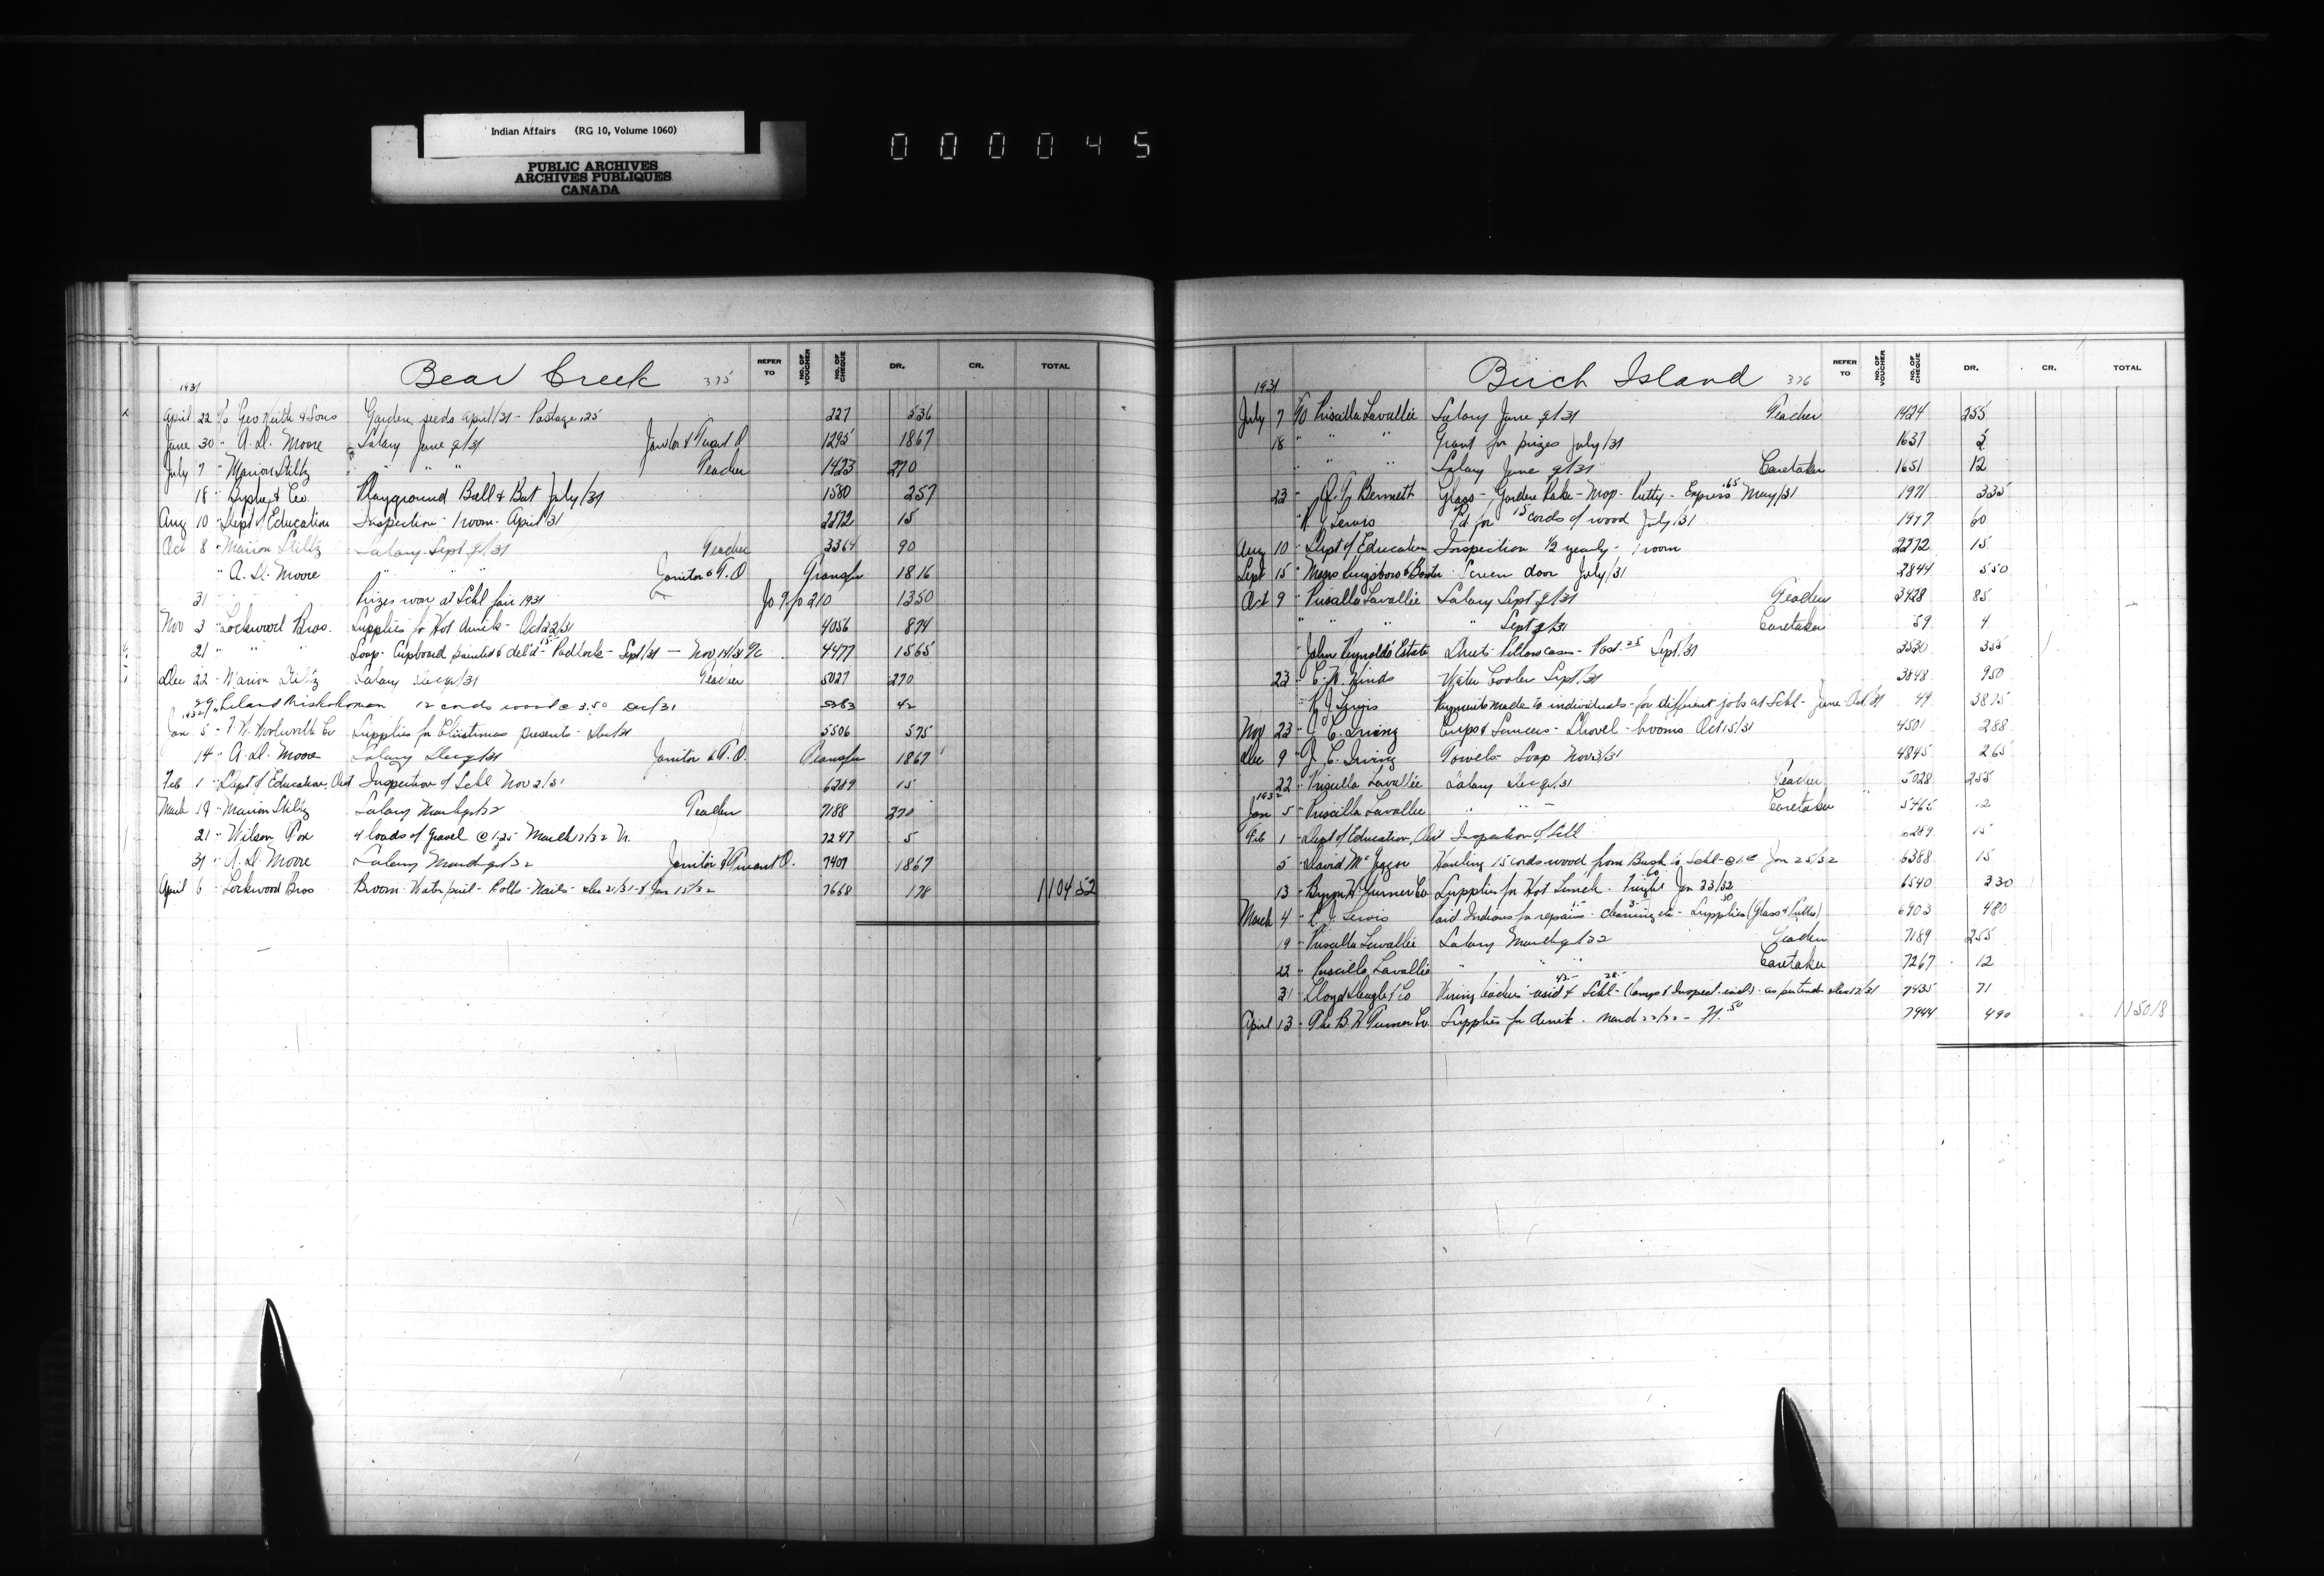 Indian Affairs (RG 10, Volume 1060)
PUBLIC ARCHIVES
ARCHIVES PUBLIQUES
CANADA
000045
Bear Creek 375
REFER TO NO. OF VOUCHER NO. OF CHEQUE DR. CR. TOTAL
1931
April 22 To Geo Keith & Sons Garden seeds April/31 - Postage .25 227 536
June 30 " A. D. Moore Salary June qr/31 Janitor & Truant O 1295 1867
July 7 " Marion Stiltz " " " Teacher 1423 270
18 " & Co Playground Ball & Bat July/31 1580 257
Aug 10 " Dept of Education Inspection 1 room - April/31 2272 15
Oct 8 " Marion Stiltz Salary Sept qr/31 Teacher 3364 90
" A. D. Moore " " " Janitor & T.O Transfer 1816
31 " " Prizes won at Schl fair 1931 Jo 9 fo 210 1350
Nov 3 " Lockwood Bros. Supplies for Hot drink - Oct 22/31 4056 874
21 " " " Soap - Cupboard painted & del'd 15.- Padlock - Sept/31 - Nov 14/31 4477 1565
Dec 22 " Marion Stiltz Salary Dec qr/31 Teacher 5027 270
29 " Leland Miskokomon 12 cords wood @ 3.50 Dec/31 5283 42
1932
Jan 5 " F. W. Woolworth Co Supplies for Christmas presents - Dec/31 5506 575
14 " A. D. Moore Salary Dec qr/31 Janitor & T.O. Transfer 1867
Feb 1 " Dept of Education, Ont Inspection of Schl Nov 2/31 6289 15
March 19 " Marion Stiltz Salary March qr/32 Teacher 7188 270
21 " Wilson Fox 4 loads of Gravel @ 1.25 March 17/32 7247 5
31 " A. D. Moore Salary March qr/32 Janitor & Truant O. 7407 1867
April 6 " Lockwood Bros Broom - Water pail - Bolts - Nails - Dec 21/31 - & Jan 15/32 7668 178 1104 52
Birch Island 376
REFER TO NO. OF VOUCHER NO. OF CHEQUE DR. CR. TOTAL
1931
July 7 To Priscilla Lavallée Salary June qr/31 Teacher 1424 255
18 " " " Grant for prizes July/31 1637 5
" " " Salary June qr/31 Caretaker 1651 12
23 " Bennett Glass - Garden Rake - Mop - Putty - Express .65 May/31 1971 335
" R. J. Lewis Pd for 15 cords of wood July/31 1977 60
Aug 10 " Dept of Education Inspection 1/2 yearly - 1 room 2272 15
Sept 15 " Messrs Screen door July/31 2844 550
Oct 9 " Priscilla Lavallée Salary Sept qr/31 Teacher 3428 85
" " " " Sept qr/31 Caretaker 59 4
" John Reynolds' Estate Sheets Pillowcases - Post. 25 Sept/31 3530 355
23 " Hinds Water Cooler Sept/31 3848 950
" R. J. Lewis Payments made to individuals - for different jobs at Schl - June - Oct/31 49 3875
Nov 23 " J. C. Irving Cups & Saucers - Shovel - brooms Oct 15/31 4501 288
Dec 9 " J. C. Irving Towels - Soap Nov 3/31 4845 265
22 " Priscilla Lavallée Salary Dec qr/31 Teacher 5028 255
1932
Jan 5 " Priscilla Lavallee " " " Caretaker 5465 12
Feb 1 " Dept of Education, Ont Inspection of Schl 6289 15
5 " David Hauling 15 cords wood from Bush to Schl @ 1.00 Jan 25/32 6388 15
13 " Byron H Turner Co Supplies for Hot Lunch - Freight 60 Jan 23/32 6540 330
March 4 " R. J. Lewis Paid Indians for repairs - cleaning etc - Supplies (Glass & Putty) 6903 480
19 " Priscilla Lavallée Salary March qr/32 Teacher 7189 255
22 " Priscilla Lavallée " " " Caretaker 7267 12
31 " Lloyd & Co Wiring teachers' resid 42- & Schl 28- (Lamps & Inspect. incl) - as per tender Dec 17/31 7435 71
April 13 " The B H Turner Co Supplies for drink - March 22/32 - Ft. 50 7944 490 1150 18